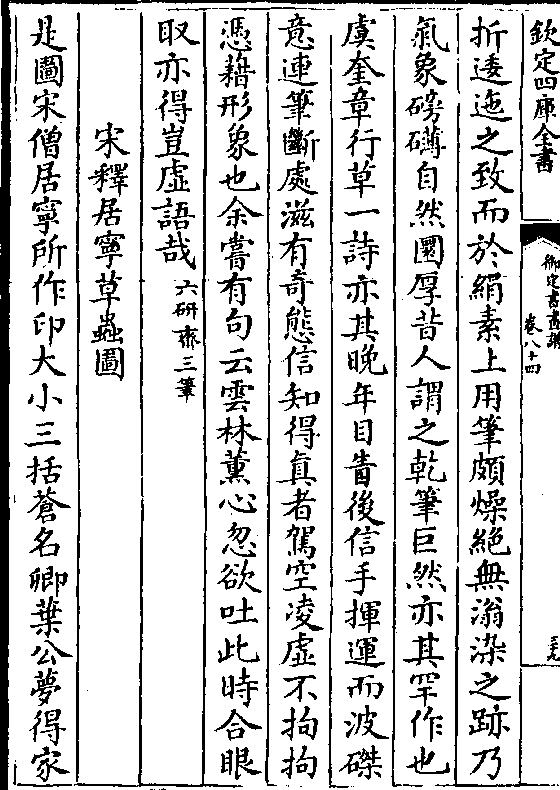 欽定四庫全書
御定書畫譜
卷八十四
三九
折逶迤之致而於絹素上用筆頗燥絶無滃染之跡乃
氣象磅礴自然圜厚昔人謂之乾筆巨然亦其罕作也
虞奎章行草一詩亦其晚年目眚後信手揮運而波磔
意連筆斷處滋有奇態信知得真者駕空凌虛不拘拘
憑藉形象也余嘗有句云雲林薰心忽欲吐此時合眼
取亦得豈虛語哉六研齋三筆
宋釋居寧草蟲圖
是圖宋僧居寧所作印大小三括蒼名卿葉公夢得家